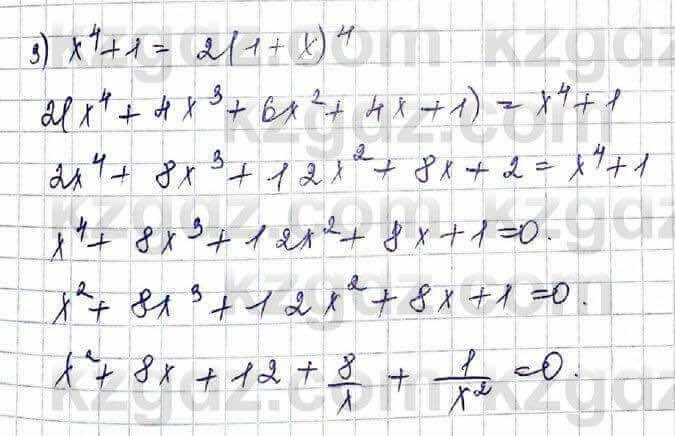 3) x⁴+1 = 2(1+x)⁴
2(x⁴+4x³+6x²+4x+1) = x⁴+1
2x⁴+8x³+12x²+8x+2 = x⁴+1
x⁴+8x³+12x²+8x+1=0.
x²+8x³+12x²+8x+1=0.
x²+8x+12+8/x+1/x²=0.
kzgdz.com